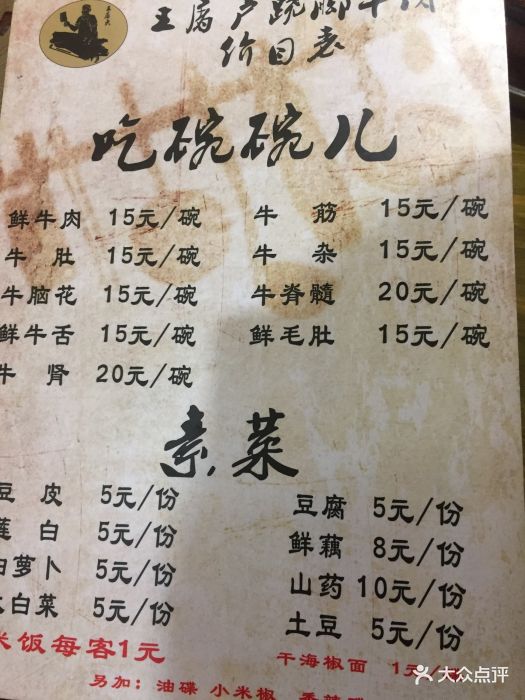 王腐芦跷脚牛肉
价目表
吃碗碗儿
鲜牛肉 15元/碗 牛筋 15元/碗
牛肚 15元/碗 牛杂 15元/碗
牛脑花 15元/碗 牛脊髓 20元/碗
鲜牛舌 15元/碗 鲜毛肚 15元/碗
牛肾 20元/碗
素菜
豆皮 5元/份 豆腐 5元/份
莲白 5元/份 鲜藕 8元/份
白萝卜 5元/份 山药 10元/份
大白菜 5元/份 土豆 5元/份
米饭每客1元 干海椒面 1元/
另加：油碟 小米椒
大众点评